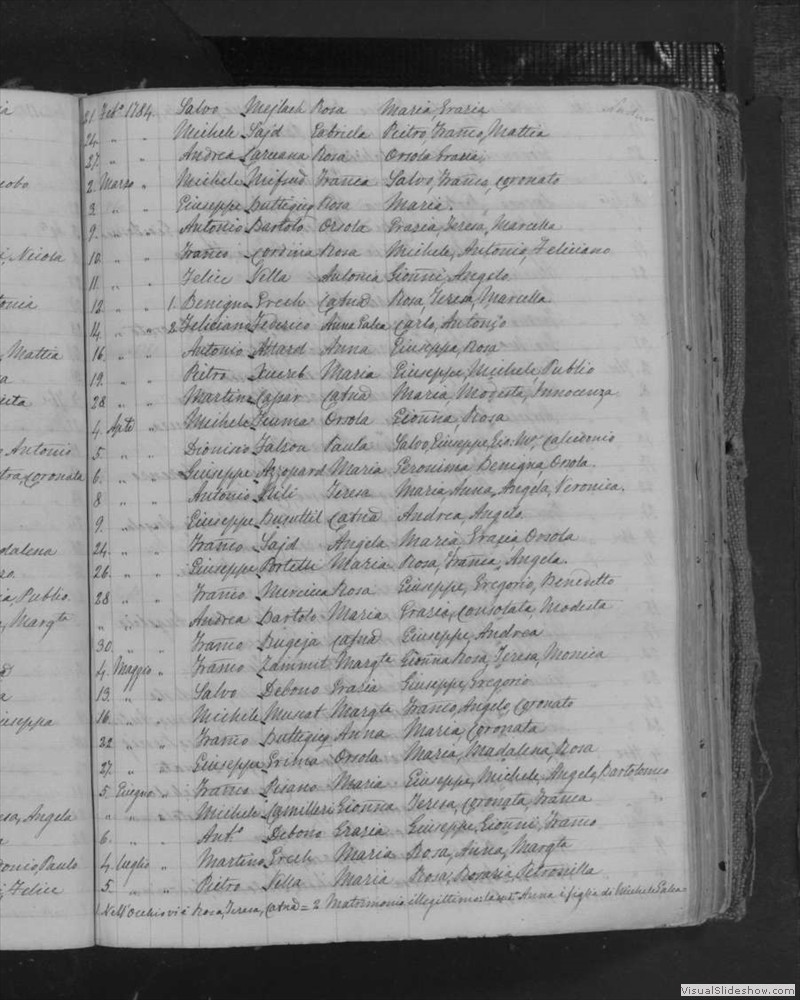 21 Feb.o 1784 Salvo Mejlach Rosa Maria, Grazia
24 " " Michele Sajd Gabriela Pietro, Franco, Mattia
27 " " Andrea Caruana Rosa Orsola Grazia
2 Marzo " Michele Mifsud Franca Salvo, Franco, Coronato
3 " " Giuseppe Buttigieg Rosa Maria.
9 " " Antonio Bartolo Orsola Grazia, Teresa, Marcella
10 " " Franco Cordina Rosa Michele, Antonio, Feliciano
11 " " Felice Vella Antonia Gionni, Angelo
12 " " 1. Benigno Grech Catna Rosa, Teresa, Marcella
14 " " 2. Feliciano Federico Anna Galea Carlo, Antonio
16 " " Antonio Attard Anna Giuseppa, Rosa
19 " " Pietro Xuereb Maria Giuseppe, Michele Publio
28 " " Martino Capar Catna Maria, Modesta, Innocenza
4 Aple " Michele Giuma Orsola Gionna, Rosa
5 " " Dionisio Falzon Paula Salvo, Giuseppe, Calcidonio
6 " " Giuseppe Azzopard Maria Geronima Benigna Orsola.
8 " " Antonio Teresa Maria, Anna, Angela, Veronica.
9 " " Giuseppe Busuttil Catna Andrea, Angelo
24 " " Franco Sajd Angela Maria Grazia Orsola
26 " " Giuseppe Portelli Maria Rosa, Franca, Angela.
28 " " Franco Mercieca Rosa Giuseppe, Gregorio, Benedetto
" " " Andrea Bartolo Maria Grazia, Consolata, Modesta
30 " " Franco Bugeja Catna Giuseppe, Andrea
4 Maggio " Franco Zammit Margta Gionna Rosa, Teresa, Monica
13 " " Salvo Debono Grazia Giuseppe, Gregorio
16 " " Michele Muscat Margta Franco, Angelo, Coronato
22 " " Franco Buttigieg Anna Maria, Coronata
27 " " Giuseppe Grima Orsola Maria, Madalena, Rosa
5 Giugno " Franco Pisano Maria Giuseppe, Michele, Angelo, Bartolomeo
" " " Michele Camilleri Gionna Teresa, Coronata, Franca
6 " " Anto. Debono Grazia Giuseppe, Gionni, Franco
4 Luglio " Martino Grech Maria Rosa, Anna, Margta
5 " " Pietro Vella Maria Rosa, Rosaria, Petronilla
1 Nell'Occhio vi è Rosa, Teresa, Catna = 2 Matrimonio illegittimo Anna è figlia di Michele Galea
, Nicola
Mattia
Antonio
Coronata
dalena
Publio
Margta
iuseppa
Angela
onio, Paulo
Felice
VisualSlideshow.com